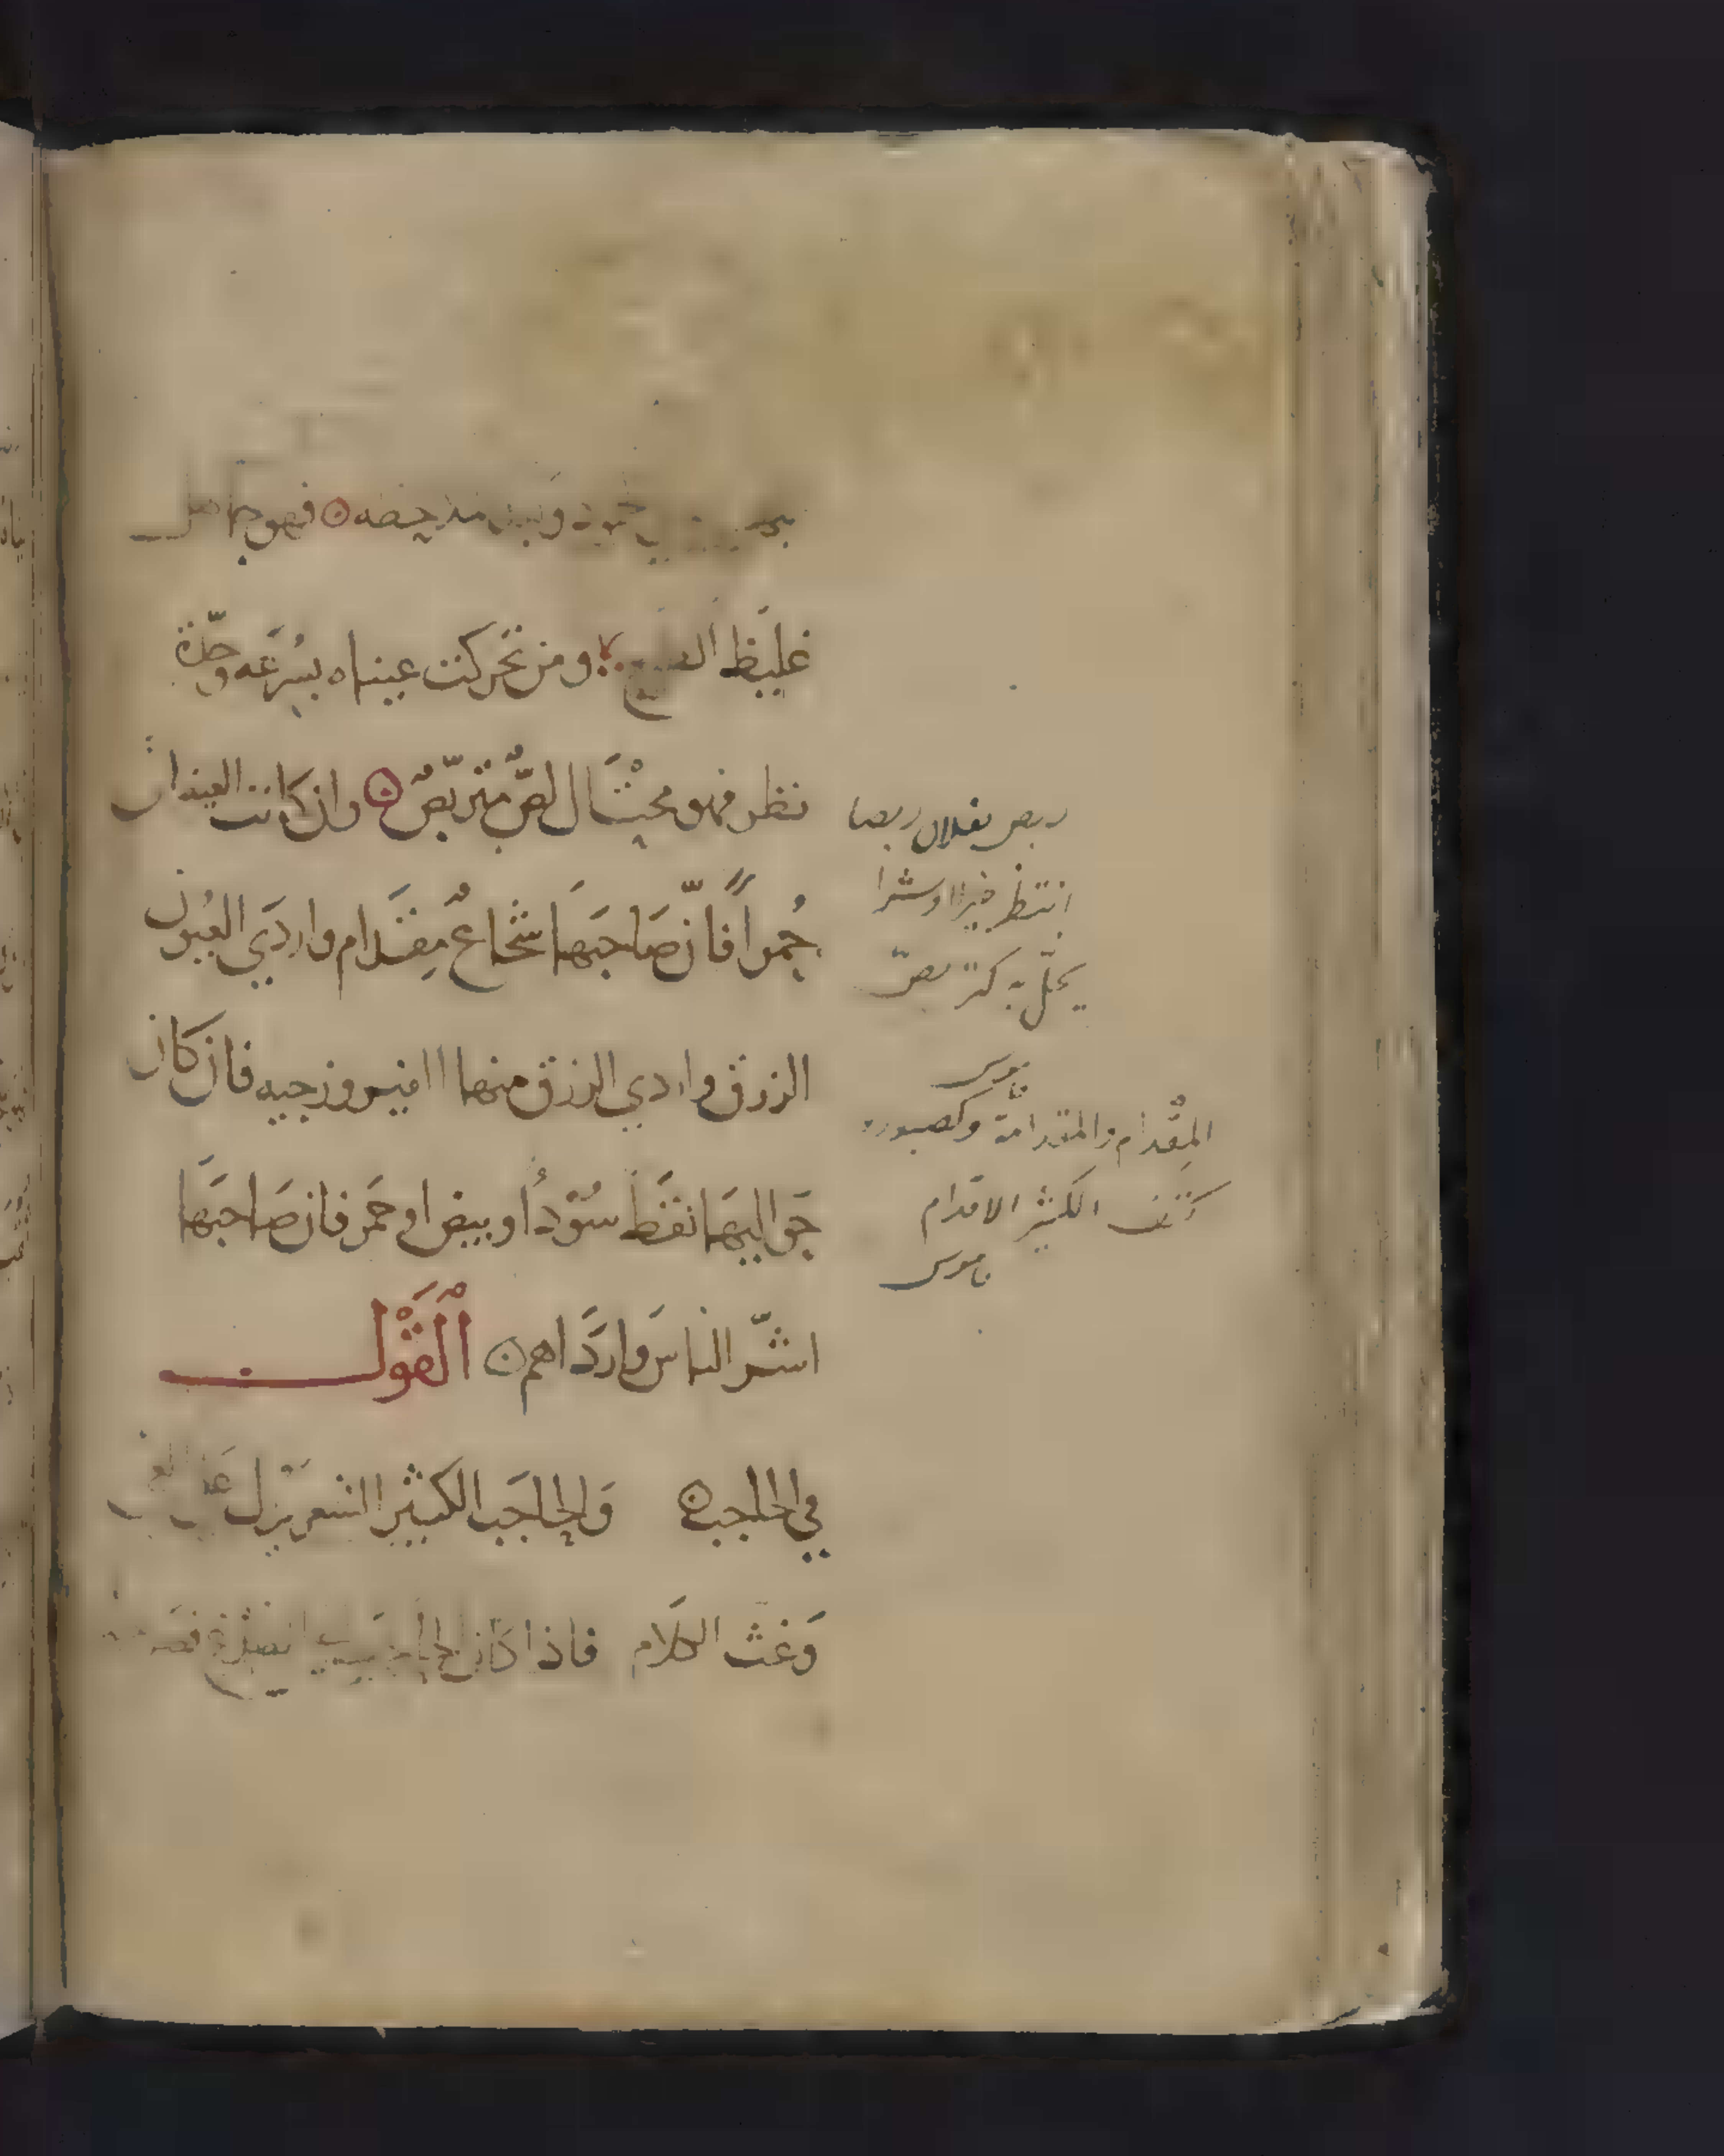 فهو جاهل
غليظ الطبع ومن تحركت عيناه بسُرعَه وحِدّة
نظر فهو محْتَال لصٌّ متربّصٌ وان كانت العينان
حُمراً فانّ صَاحبَها شجَاعٌ مِقدَام واردَي العُيون
الزرق واردي الزرق منها الفيروزجيه فان كان
حَواليهَا نقَط سُوْدٌ أو بيض او حمَر فان صَاحبَها
اشَّر الناسَ واردَاهم اَلْقَوْل
في الحاجب وَالحاجَب الكثير الشعر يَدل عَلى
وَغث الكلام فاذا كان الحاجب
ربص بفلان ربصا
انتظر خيرا او شرا
يحلّ به كتربصّ
قاموس
المِقْدام والمقدامة وكصبور
الكثير الاقدام
قاموس